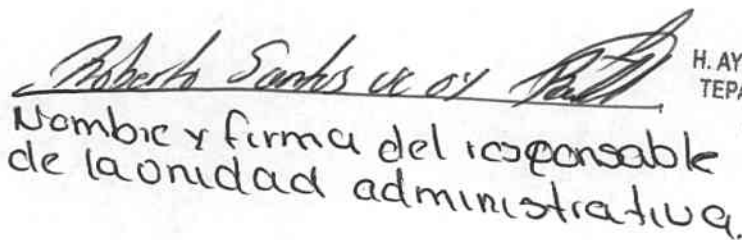 Roberto Santos
H. AY
TEPA
Nombre y firma del responsable
de la unidad administrativa.